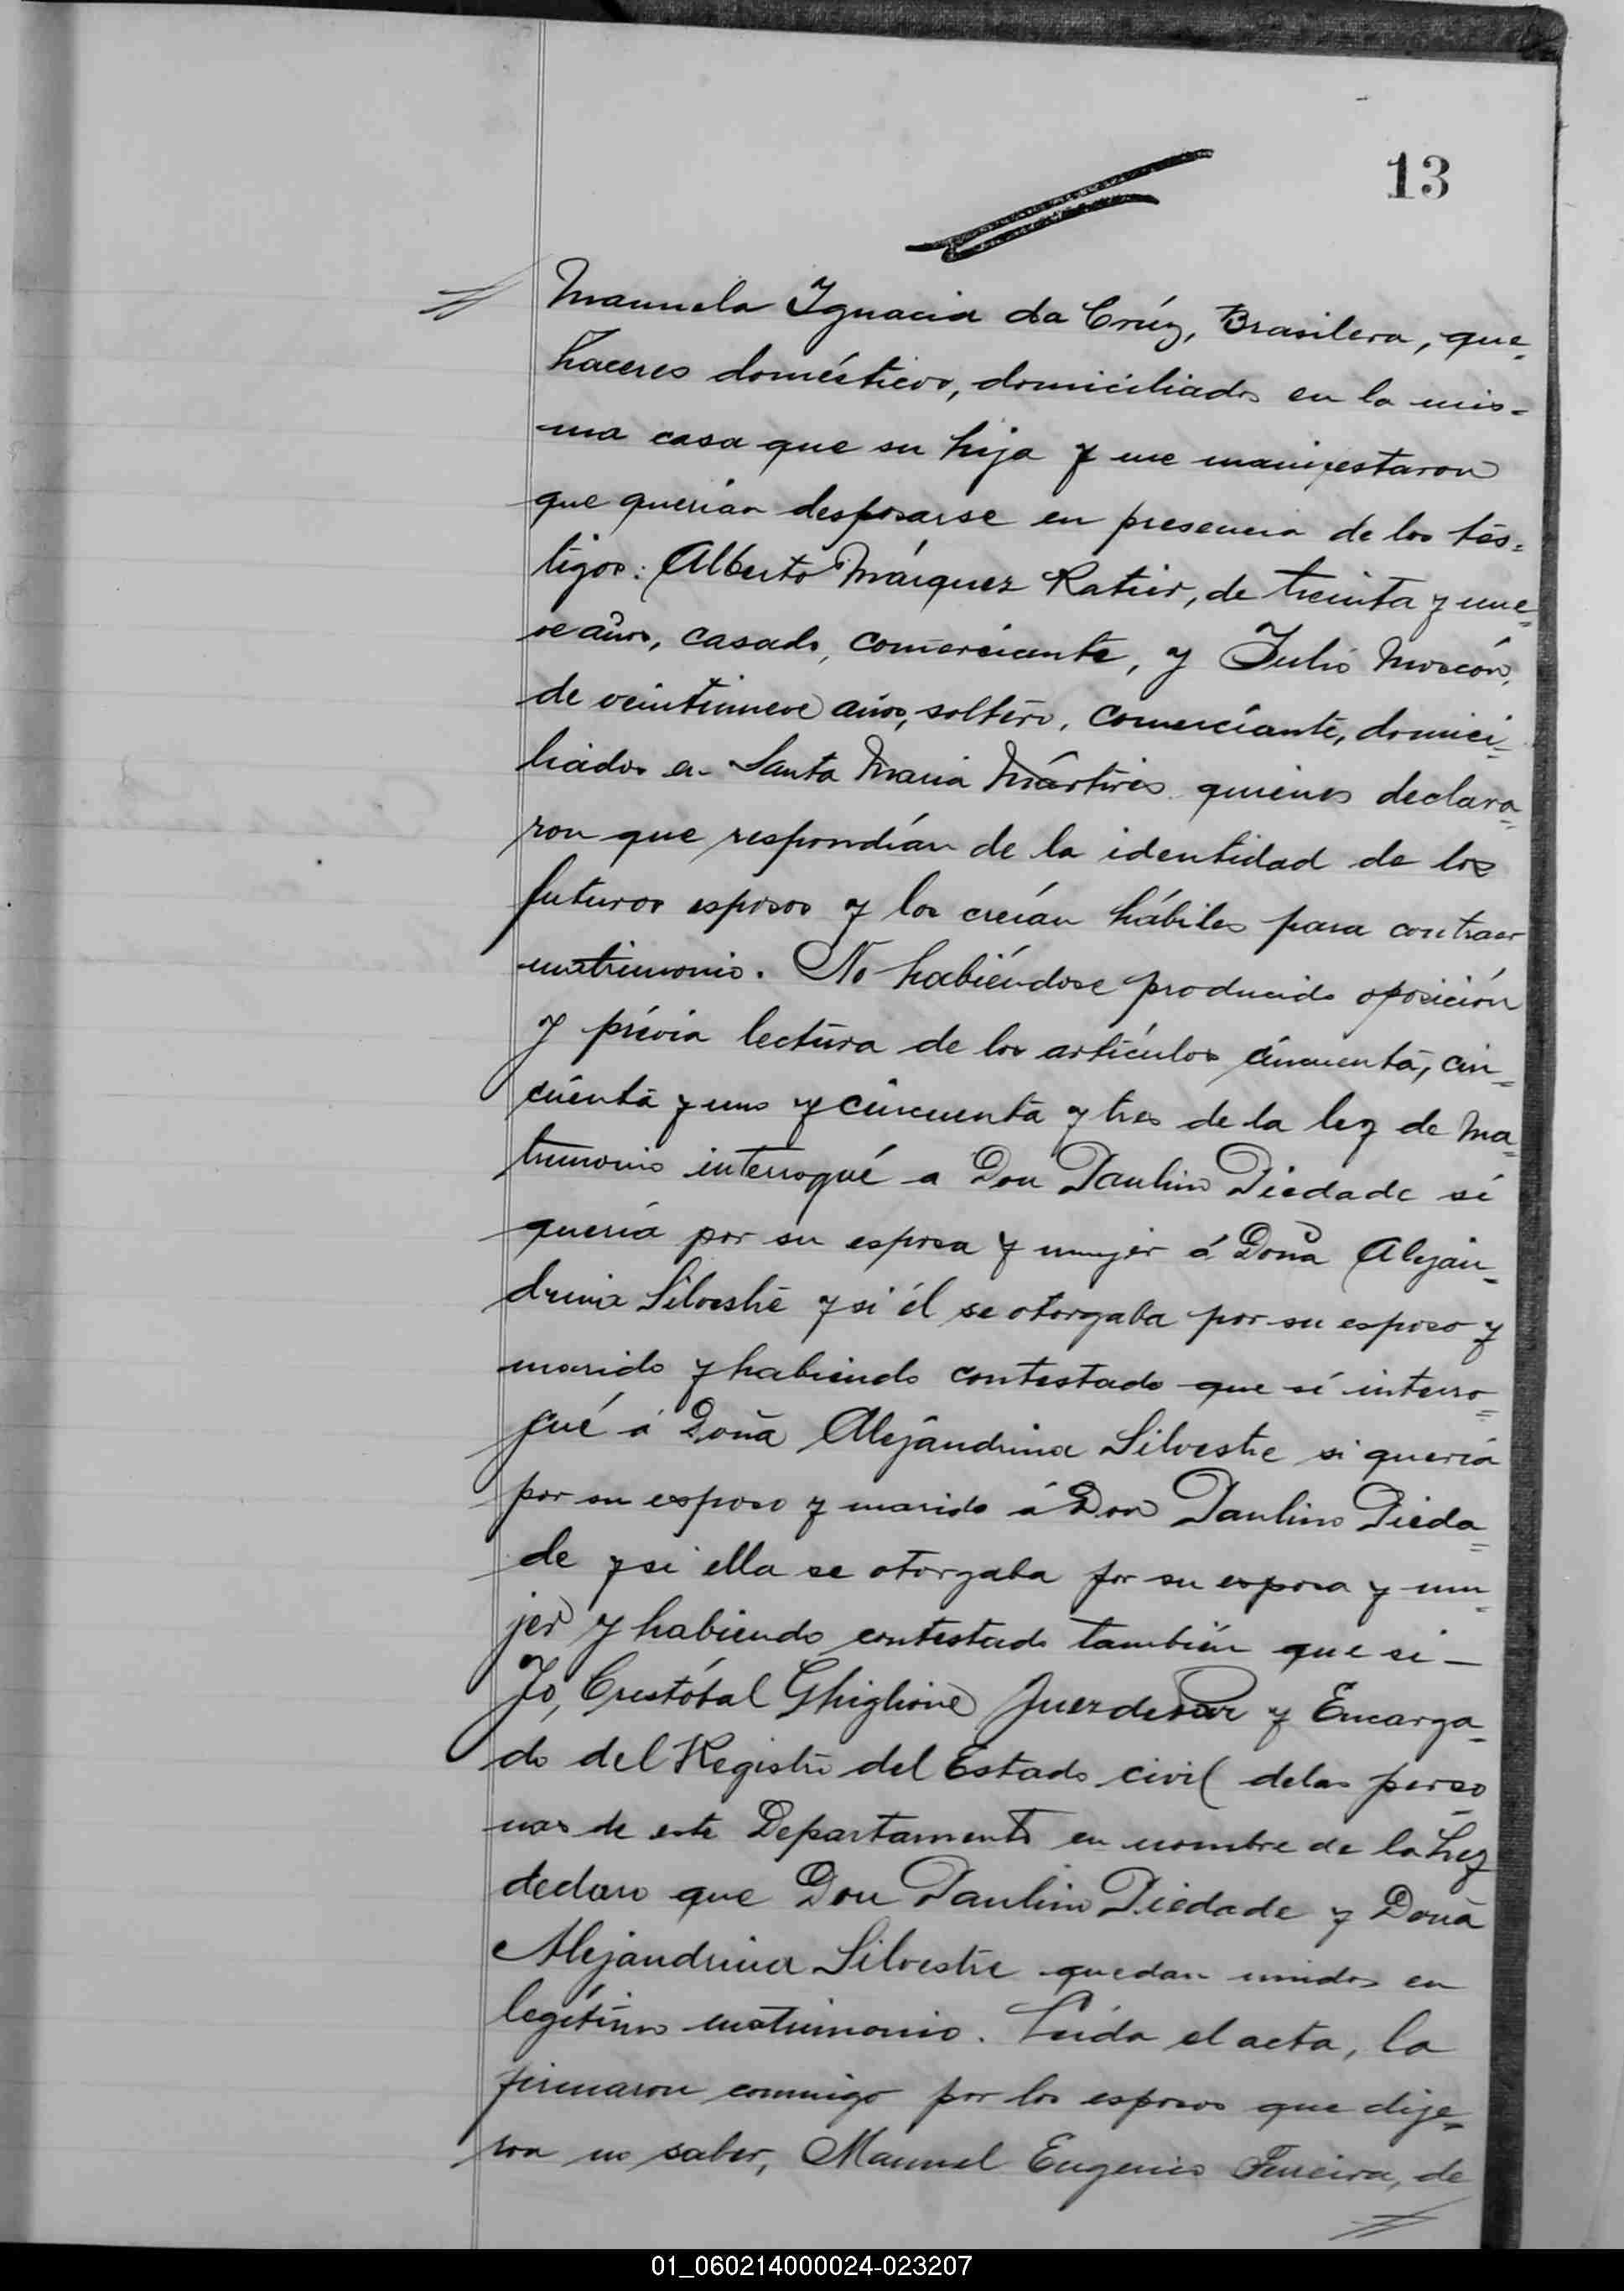 13
Manuela Ignacia da Crúz, Brasilera, que=
haceres domésticos, domiciliados en la mis=
ma casa que su hija y me manifestaron
que querían desposarse en presencia de los tes=
tigos: Alberto Márquez Ratier, de treinta y nue=
ve años, casado, comerciante, y Julio
de veintinueve años, soltero, comerciante, domici=
liados en Santa María Mártires quienes declara=
ron que respondían de la identidad de los
futuros esposos y los creían hábiles para contraer
matrimonio. No habiéndose producido oposición
y prévia lectura de los artículos cincuenta, cin=
cuenta y uno y cincuenta y tres de la ley de Ma=
trimonio interrogué a Don Paulino Piedade si
quería por su esposa y mujer á Doña Alejan=
drina Silvestre y si él se otorgaba por su esposo y
marido y habiendo contestado que sí interro=
gué á Doña Alejandrina Silvestre si quería
por su esposo y marido á Don Paulino Pieda=
de y si ella se otorgaba por su esposa y mu=
jer y habiendo contestado también que si —
Yo, Cristóbal Ghiglione Juez de Paz y Encarga=
do del Registro del Estado civil de las perso=
nas de este Departamento en nombre de la Ley
declaro que Don Paulino Piedade y Doña
Alejandrina Silvestre quedan unidos en
legítimo matrimonio. Leída el acta, la
firmaron conmigo por los esposos que dije=
ron no saber, Manuel Eugenio Ferreira, de
01_060214000024-023207